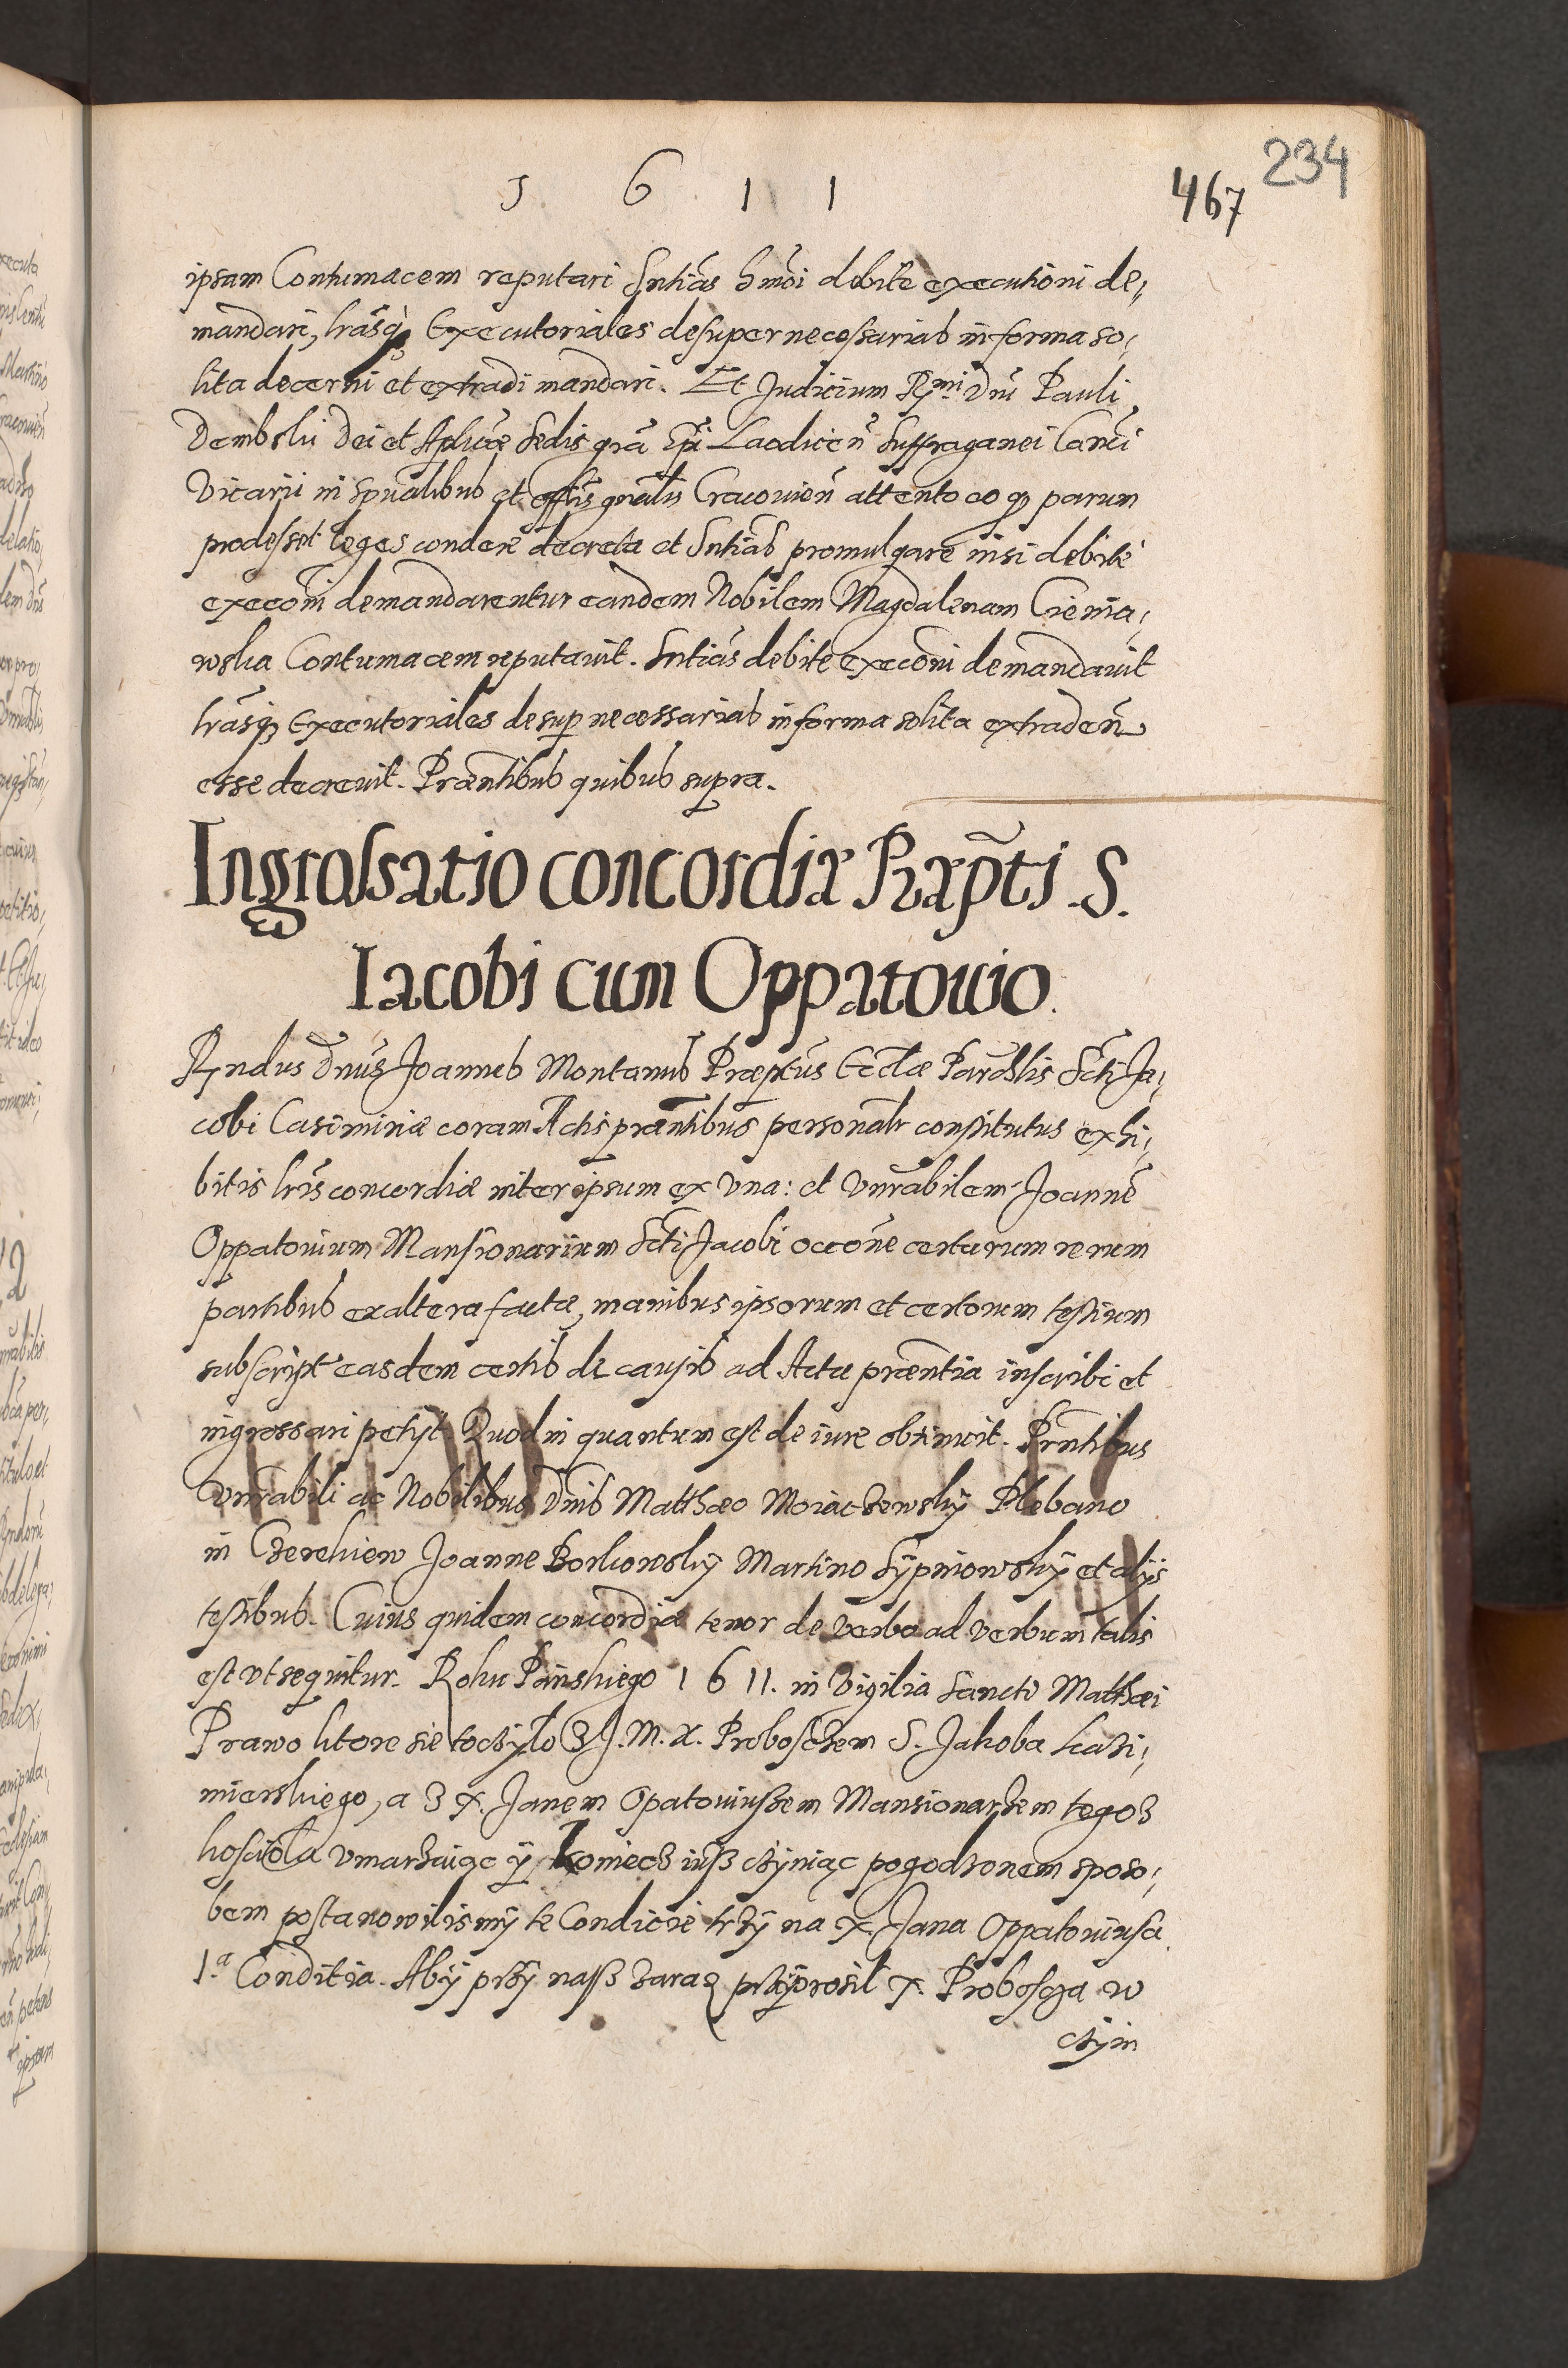 1 6 1 1
467
234
ipsam Contumacem reputari Sntiãs hmõi debite executioni de,
mandari, lrãsq̃ Executoriales desuper necessarias in forma so,
lita decerni et extradi mandari. Et Judicium Rmi Dni Pauli
Dembski Dei et Aplicæ Sedis grã Epi Laodiceñ Suffraganei Canci
Vicarii in spualibus et offlis gnalis Cracouien̄ attento eo q̃ parum
prodesset leges condere decreta et Sntias promulgare nisi debitè
execõni demandarentur eandem Nobilem Magdalenam Ciema,
wska Contumacem reputauit. Sntiãs debite execõni demandauit
lrãsq̃ Executoriales desup necessarias in forma solita extraden̄
esse decreuit. Præntibus quibus supra.
Ingrossatio concordiæ Præpti S.
Iacobi cum Oppatouio.
Rndus Dnus Joannes Montanus Præptus Ecclæ Parochlis Scti Ja,
cobi Casimiriæ coram Actis præntibus personalr constitutus exhi,
bitis lris concordiæ inter ipsum ex vna: et Vnrabilem Joannẽ
Oppatouium Mansionarium Scti Jacobi occõne certarum rerum
partibus ex altera factæ, manibus ipsorum et certorum testium
subscript easdem certis de causis ad Acta præntia inscribi et
ingrossari petijt. Quod in quantum est de iure obtinuit. Prntibus
Vnrabili ac Nobilibus Dnis Matthæo Moiaczewskÿ Plebano
in Joanne Borkowskÿ Martino Sÿpniowskÿ et alÿs
testibus. Cuius quidem concordiæ tenor de verbo ad verbum talis
est vt sequitur. Roku Panskiego 1611. in Vigilia Sancti Matthæi
Prawo ktore sie toczÿło z J. M. X. Proboszczem S. Jakoba kazi,
mierskiego, a z X. Janem Opatouiuszem Mansionarzem tegoz
kosciola vmarzaiąc ÿ koniecz iusz czÿniąc pogodzonem sposo,
bem postanowilismÿ te Condicie trzÿ na X. Jana Oppatouiusa
1.a Conditia. Abÿ przÿ nasz zaraz przÿprosil X. Proboscza w
czÿm